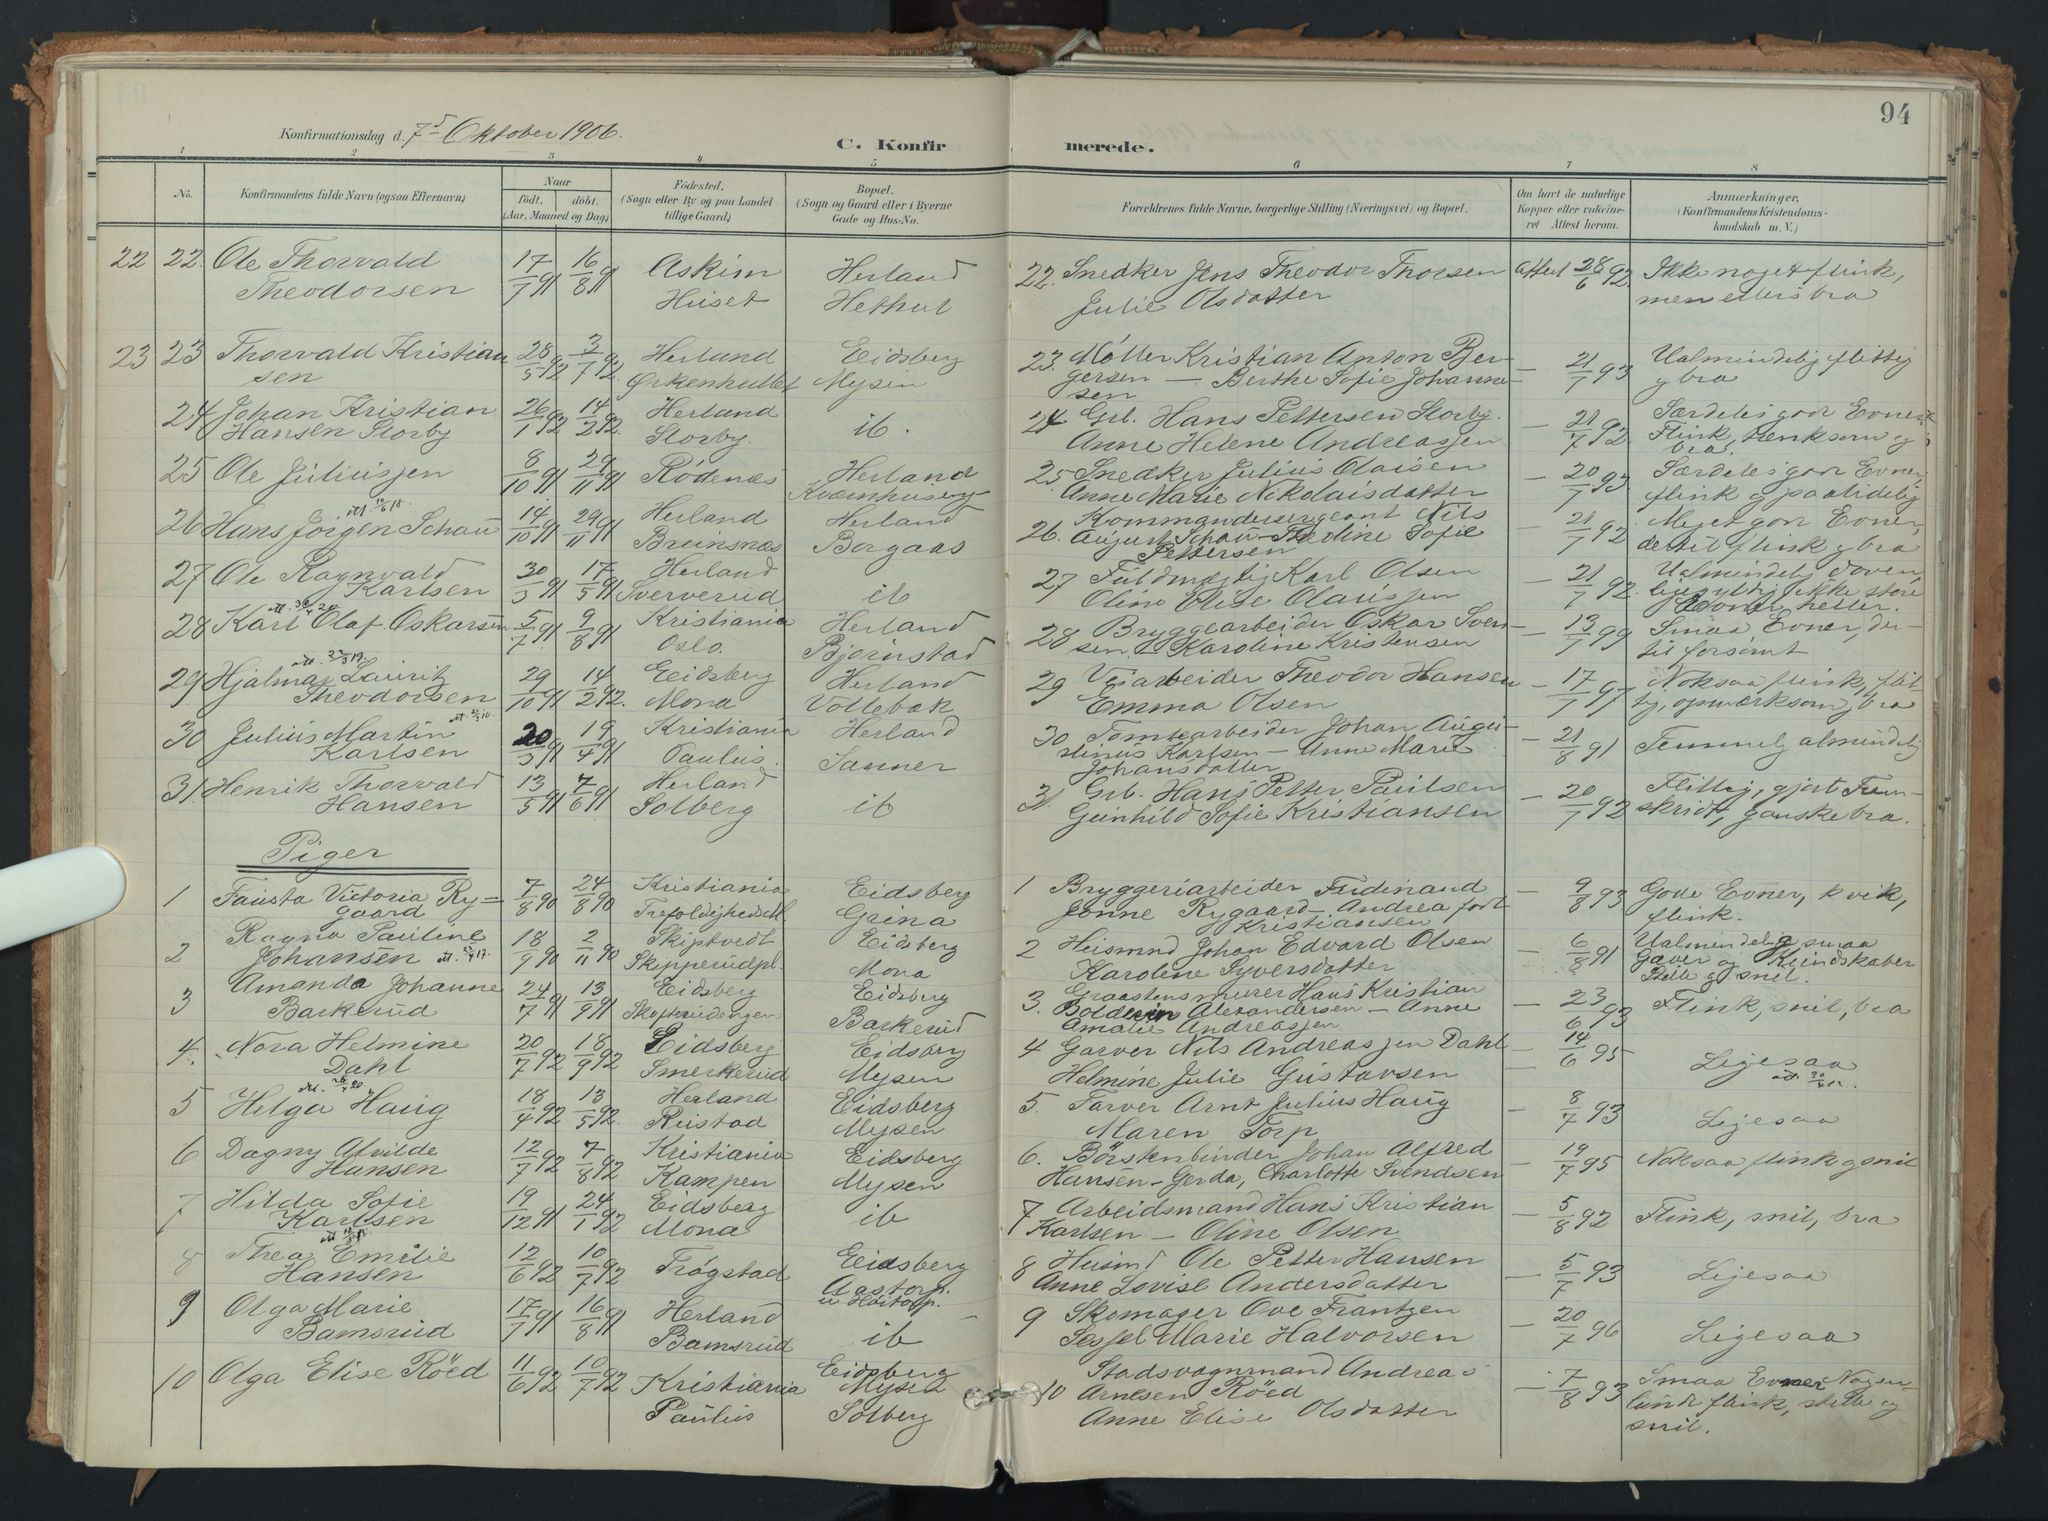 94
Konfirmationsdag d. 7de Oktober 1906.
C. Konfirmerede.
1 2 3 4 5 6 7 8
No. Konfirmandens fulde Navn (ogsaa Efternavn) Naar födt. döbt. (Aar, Maaned og Dag) Födested. (Sogn eller By og paa Landet tillige Gaard) Bopæl. (Sogn og Gaard eller i Byerne Gade og Hus-No. Forældrenes fulde Navne, borgerlige Stilling (Næringsvei) og Bopæl. Om havt de naturlige Kopper eller vaccineret Attest herom. Anmærkninger. (Konfirmandens Kristendomskundskab m. V.)
22 22. Ole Thorvald 17/7 91 16/8 91 Askim Herland 22. Snedker Jens Theodor Thorsen Attest 28/6 92 Ikke noget flink,
Theodorsen Huset Julie Olsdatter men ellers bra
23 23 Thorvald Kristian 28/5 92 3/7 92 Herland Eidsberg 23. Møller Kristian Anton Ber- — 21/7 93 Ualmindelig flittig
sen Ørkenhullet Mysen gersen — Berthe Sofie Johanne- g bra
sen
24 Johan Kristian 26/1 92 14/2 92. Herland ib. 24 Grb. Hans Pettersen Storby. — 21/7 92 Særdeles god Evner,
Hansen Storby Storby. Anne Helene Andreassen Flink, tænksom g
bra.
25 Ole Juliussen 8/10 91 29/11 91 Rødenæs Herland 25 Snedker Julius Olaisen — 20/7 93 Særdeles god Evner,
Anne Marie Nikolaisdatter flink g paalidelig
26 Hans Jörgen Schau 14/10 91 29/11 91 Herland Herland 26. Kommandersergeant Nils — 21/7 92 Meget god Evner,
Breinsnæs Borgaas August Schau — Sofie dertil flink g bra
Pettersen
27 Ole Ragnvald 30/3 91 17/5 91 Herland ib 27 Fuldmægtig Karl Olsen — 21/7 92. Ualmindelig doven,
Karlsen Sververud Oline Elise Olaussen ikke store
Evner heller.
28 Karl Olaf Oskarsen 5/7 91 9/8 91 Kristiania Herland 28 Bryggearbeider Oskar Sven- — 13/7 99 Smaa Evner, der-
Oslo. Bjørnstad sen — Karoline Kristensen til forsømt
29 Hjalmar Lauritz 29/10 91 14/2 92. Eidsberg Herland 29 Veiarbeider Theodor Hansen — 17/7 97 Noksaa flink, flit-
Theodorsen Mona Vollebæk Emma Olsen tig, opmærksom, bra
30 Julius Martin 20/3 91 19/4 91 Kristiania Herland 30 Tomtearbeider Johan Augu- — 21/8 91 Temmelig almindelig
Karlsen Paulus. Sanner stinus Karlsen — Anne Marie
Johansdatter
31 Henrik Thorvald 13/5 91 7/6 91 Herland ib 31. Grb. Hans Petter Paulsen — 20/7 92 Flittig, gjort Frem-
Hansen Solberg Gunhild Sofie Kristiansen skridt, ganske bra.
Piger
1 Fausta Victoria Ry- 7/8 90 24/8 90 Kristiania Eidsberg 1 Bryggeriarbeider Ferdinand — 9/8 93 Gode Evner, kvik,
gaard Trefoldigheds M. Grina Jonne Rygaard — Andrea født flink.
Kristiansen
2 Ragna Pauline 18/9 90 2/11 90 Skiptvedt Eidsberg 2 Husmnd Johan Edvard Olsen — 6/8 91 Ualmindelig smaa
Johansen Skipperudpl. Mona Karoline Syversdatter Gaver og Kundskaber
Stille g snil.
3 Amanda Johanne 24/7 91 13/9 91 Eidsberg Eidsberg 3. Graastensmurer Hans Kristian — 23/6 93 Flink, snil, bra
Barkerud Skofterudengen Barkerud Boldevin Alexandersen — Anne
Amalie Andreassen
4. Nora Helmine 20/7 92 18/9 92 Eidsberg Eidsberg 4 Garver Nils Andreassen Dahl — 14/6 95 Ligesaa
Dahl Smerkerud Mysen Helmine Julie Gustavsen
5 Helga Haug 18/4 92 13/5 92. Herland Eidsberg 5. Farver Arnt Julius Haug — 8/7 93 Ligesaa
Rustad Mysen Maren Torp
6 Dagny Alvilde 12/7 92 7/8 92 Kristiania Eidsberg 6. Børstenbinder Johan Alfred — 19/7 95 Noksaa flink g snil
Hansen Kampen Mysen Hansen — Gerda, Charlotte Svendsen
7 Hilda Sofie 19/12 91 24/1 92 Eidsberg ib 7 Arbeidsmand Hans Kristian — 5/8 92 Flink, snil, bra
Karlsen Mona Karlsen — Oline Olsen
8 Thea Emilie 12/6 92 10/7 92 Trøgstad Eidsberg 8 Husmd Ole Petter Hansen — 5/7 93 Ligesaa
Hansen Aastorp. Anne Lovise Andersdatter
u Høitorp.
9 Olga Marie 17/7 91 16/8 91 Herland ib 9 Skomager Ove Frantzen — 20/7 96 Ligesaa
Bamsrud Bamsrud Marie Halvorsen
10 Olga Elise Röed 11/6 92 10/7 92 Kristiania Eidsberg 10 Stadsvognmand Andreas — 7/8 93 Smaa Evner Nogen-
Paulus Mysen Arnesen Röed lunde flink, stille og
Solberg Anne Elise Olsdatter snil.